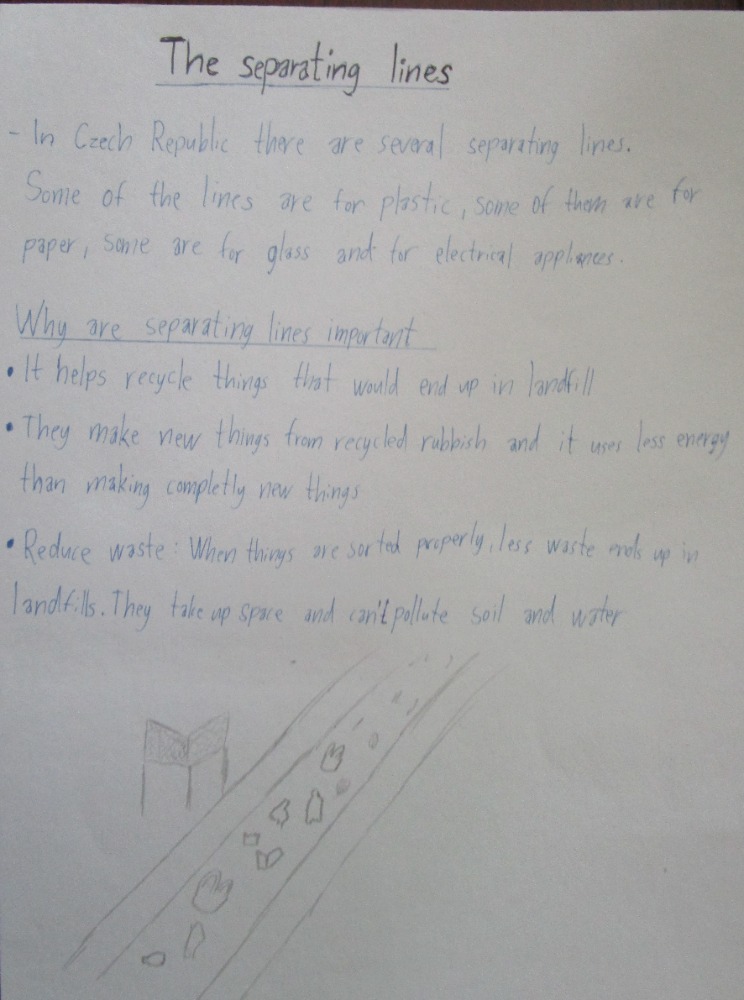 The separating lines
- In Czech Republic there are several separating lines.
Some of the lines are for plastic, some of them are for
paper, some are for glass and for electrical appliances.
Why are separating lines important
• It helps recycle things that would end up in landfill
• They make new things from recycled rubbish and it uses less energy
than making completly new things
• Reduce waste: When things are sorted properly, less waste ends up in
landfills. They take up space and can't pollute soil and water